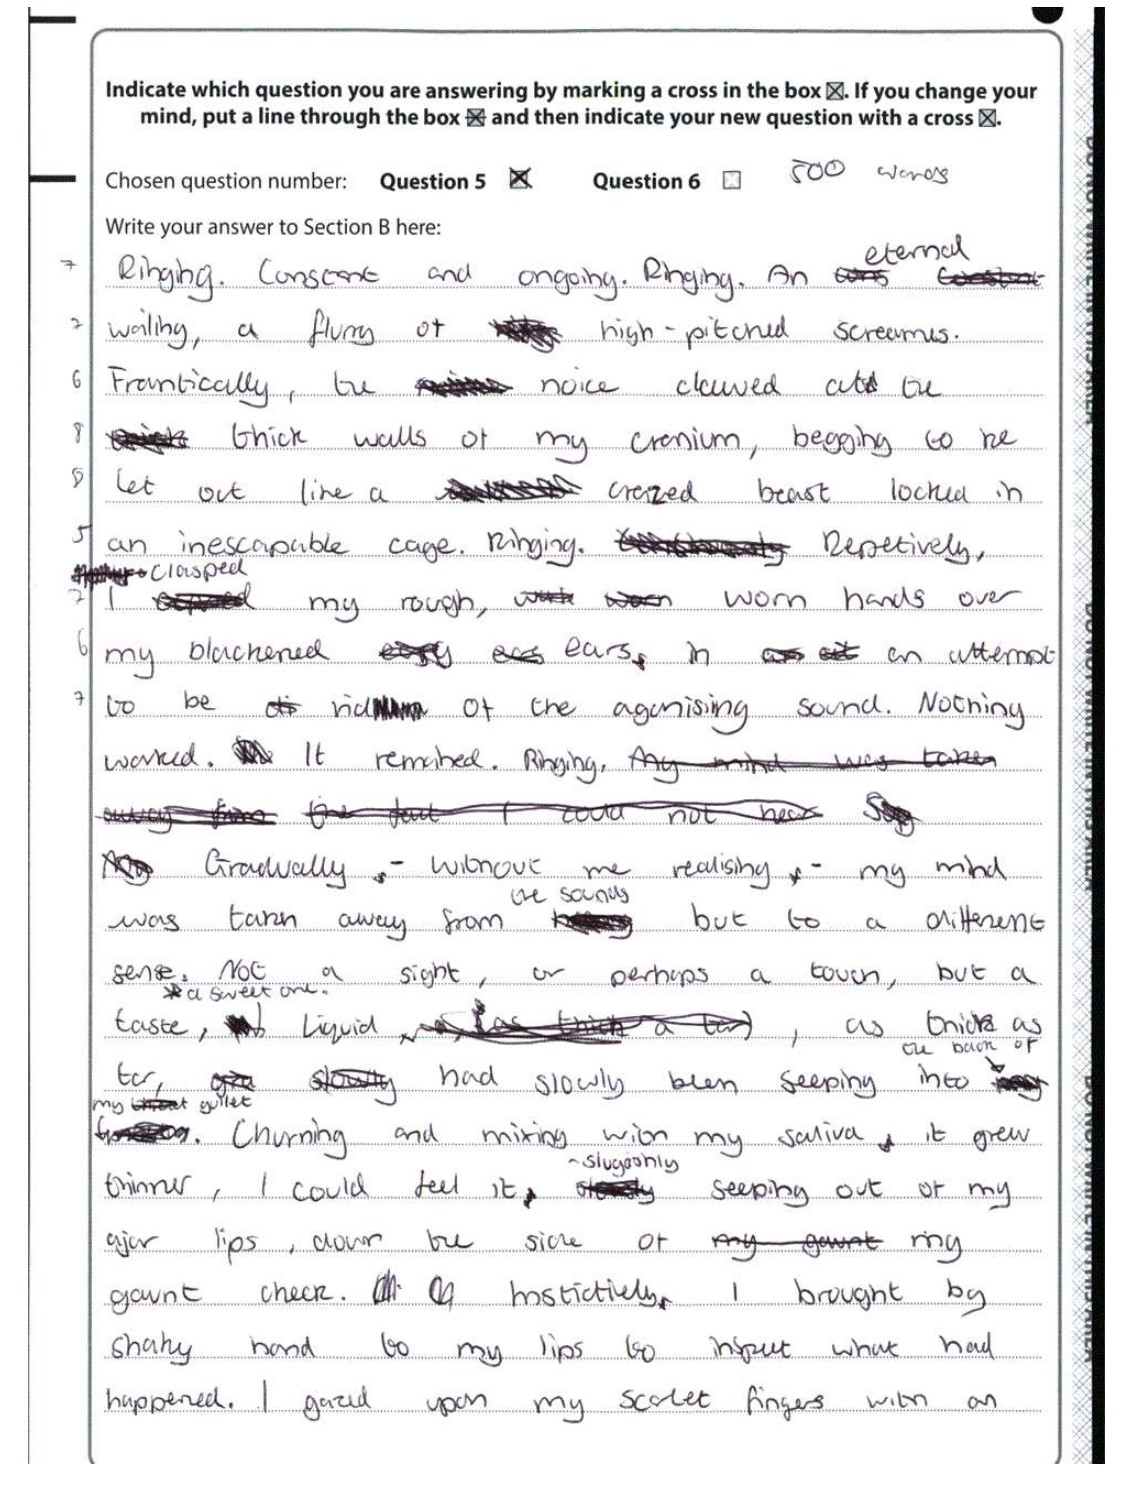 Indicate which question you are answering by marking a cross in the box ☒. If you change your
mind, put a line through the box ☒ and then indicate your new question with a cross ☒.
Chosen question number: Question 5 ☒ Question 6 ☐ 500 words
Write your answer to Section B here:
eternal
7 Ringing. Constant and ongoing. Ringing. An
7 wailing, a flurry of high-pitched screames.
6 Frantically, the noice clawed at the
8 thick walls of my cranium, begging to be
8 let out like a crazed beast locked in
5 an inescapable cage. Ringing. Repetively,
clasped
7 I my rough, worn hands over
6 my blackened ears, in an attempt
7 to be rid of the agonising sound. Nothing
worked. It remained. Ringing. My mind was taken
away from the fact I could not hear
Gradually - without me realising - my mind
the sounds
was taken away from but to a different
sense. Not a sight, or perhaps a touch, but a
* a sweet one.
taste, Liquid, as thick as
the back of
tar, slowly had slowly been seeping into
my throat gullet
Churning and mixing with my saliva, it grew
- sluggishly
thinner, I could feel it, seeping out of my
ajar lips, down the side of my gaunt my
gaunt cheek. Instictively, I brought by
shaky hand to my lips to inspect what had
happened. I gazed upon my scarlet fingers with an